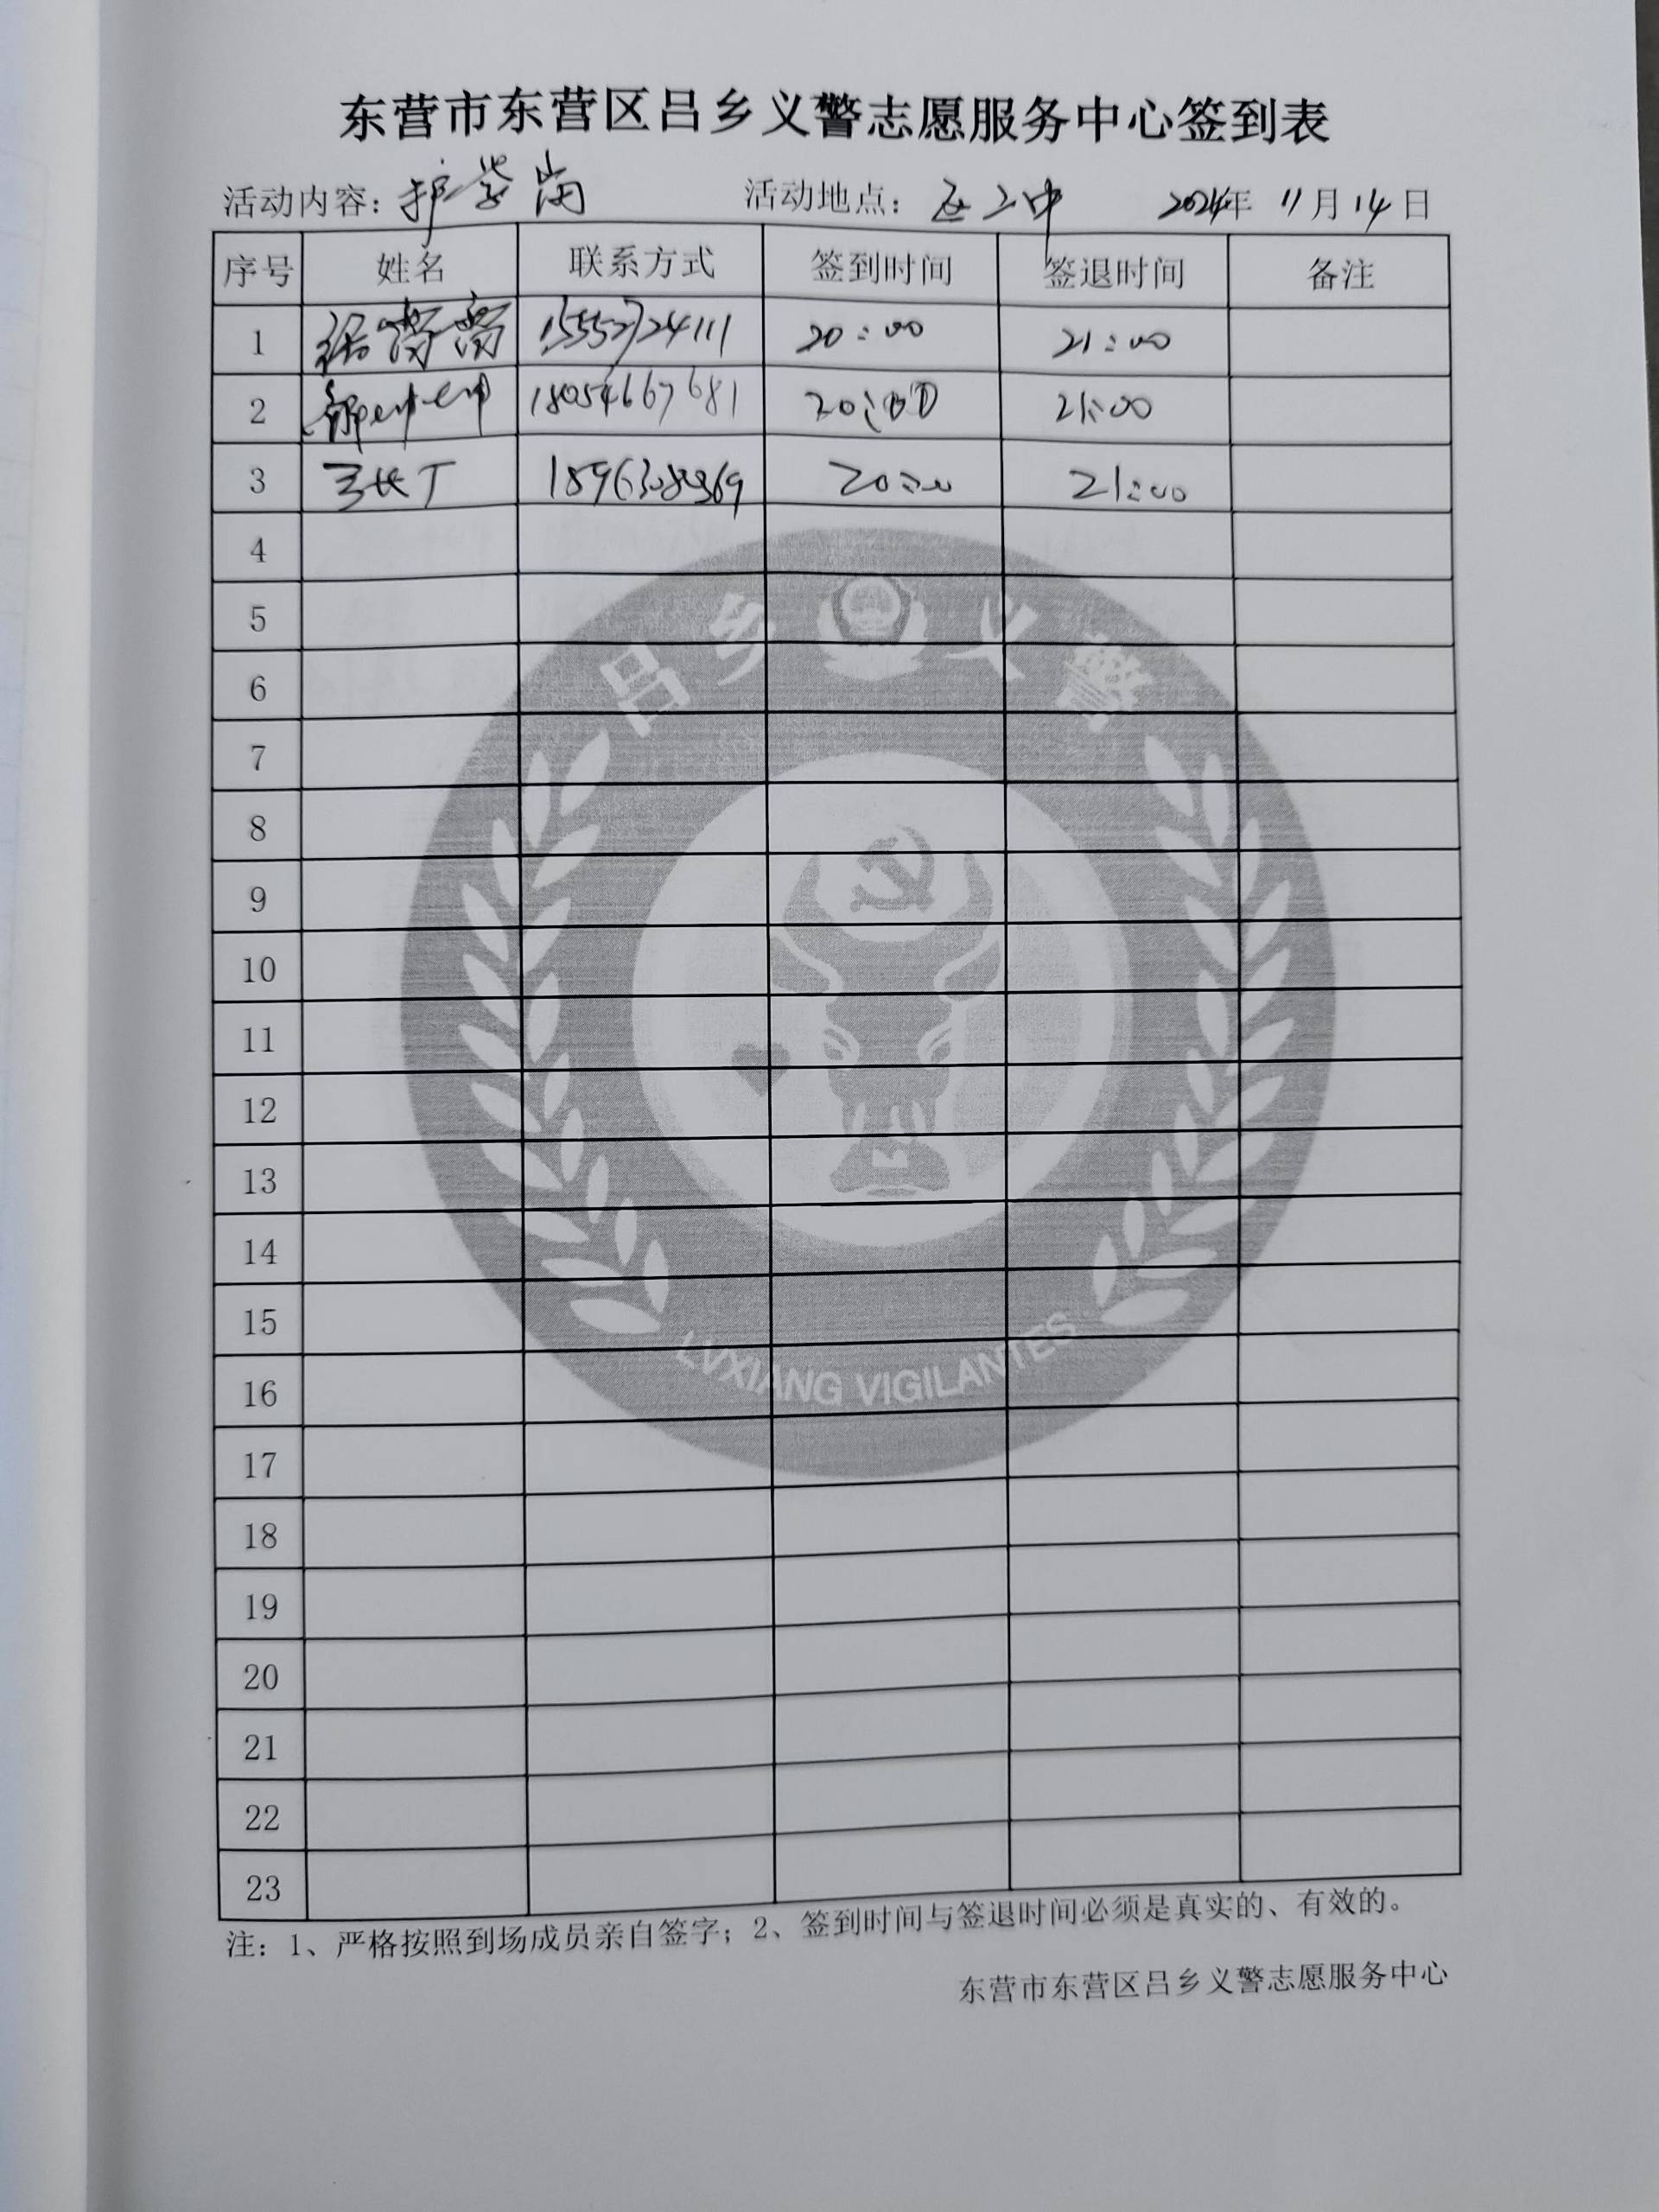 东营市东营区吕乡义警志愿服务中心签到表
活动内容：护学岗 活动地点： 2024年 11月14日
序号 姓名 联系方式 签到时间 签退时间 备注
1 15552724111 20:00 21:00
2 18054667681 20:00 21:00
3 20:00 21:00
4
5
6
7
8
9
10
11
12
13
14
15
16
17
18
19
20
21
22
23
吕乡义警
LVXIANG VIGILANTES
注：1、严格按照到场成员亲自签字；2、签到时间与签退时间必须是真实的、有效的。
东营市东营区吕乡义警志愿服务中心